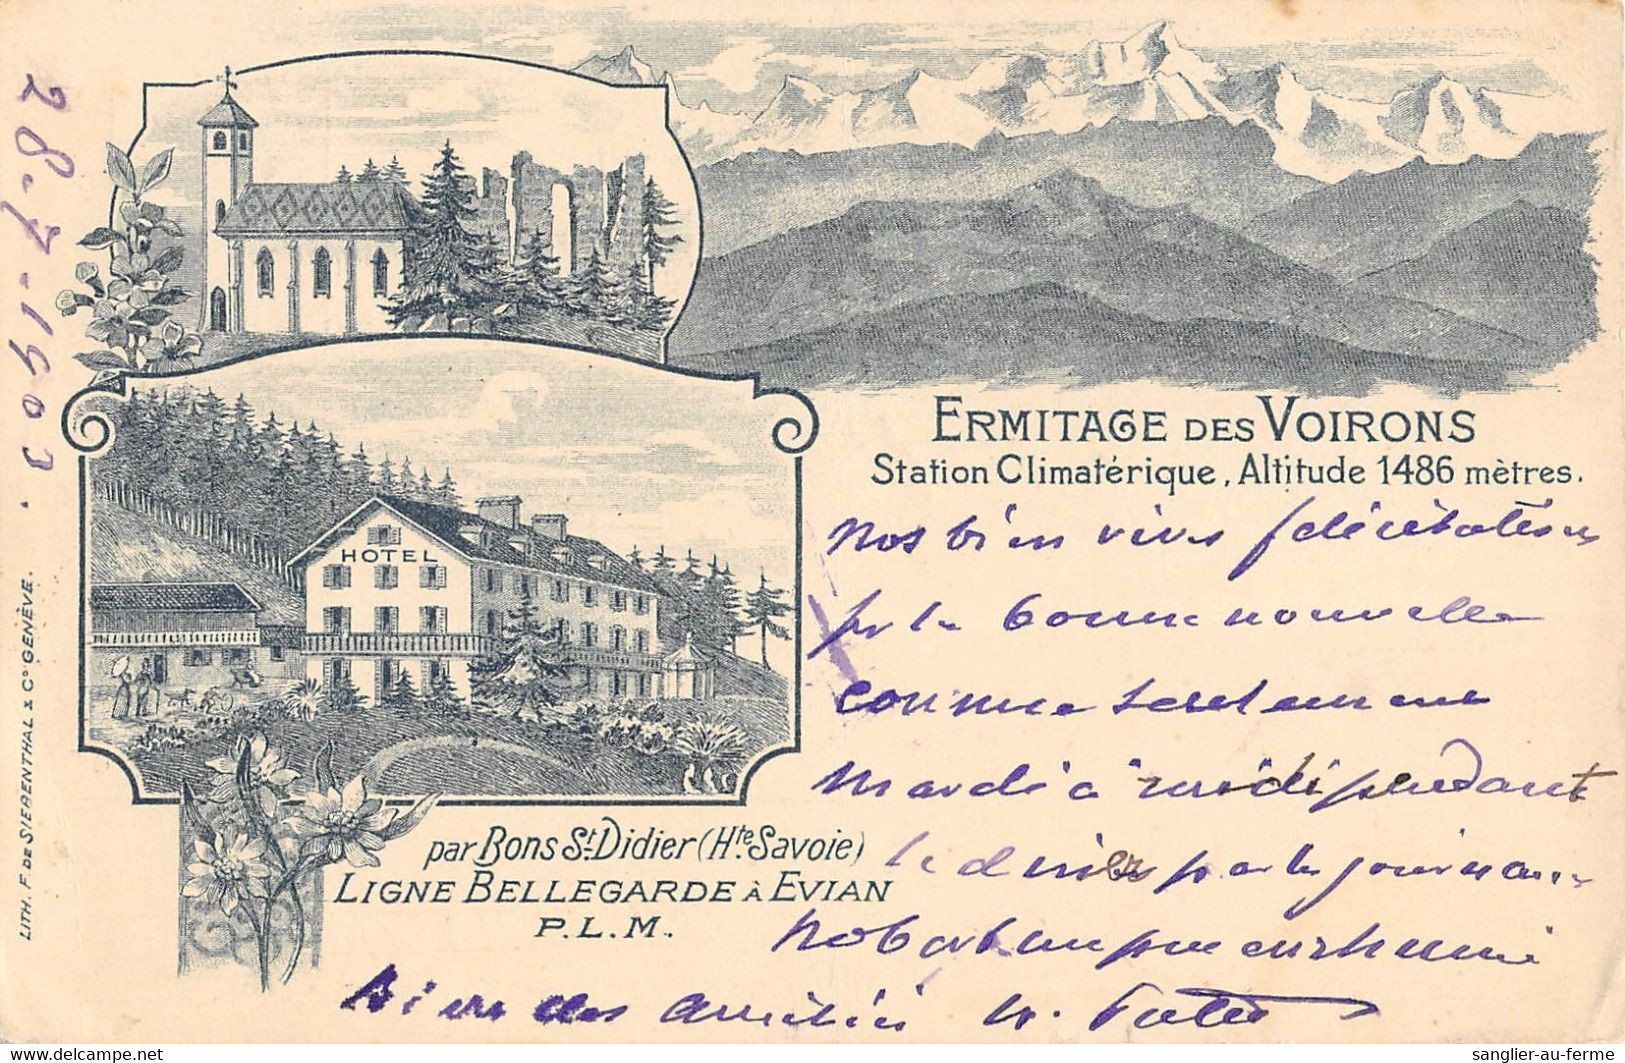 28-7-1903.
ERMITAGE DES VOIRONS
Station Climatérique, Altitude 1486 mètres.
HOTEL
Nos bien vives félicitations
pr la bonne nouvelle
connue seulement
mardi à midi pendant
le diner par le journal
Bien des amitiés
par Bons St. Didier (Hte. Savoie)
LIGNE BELLEGARDE À EVIAN
P.L.M.
LITH. F. DE SIERENTHAL & Co GENÈVE.
sanglier-au-ferme